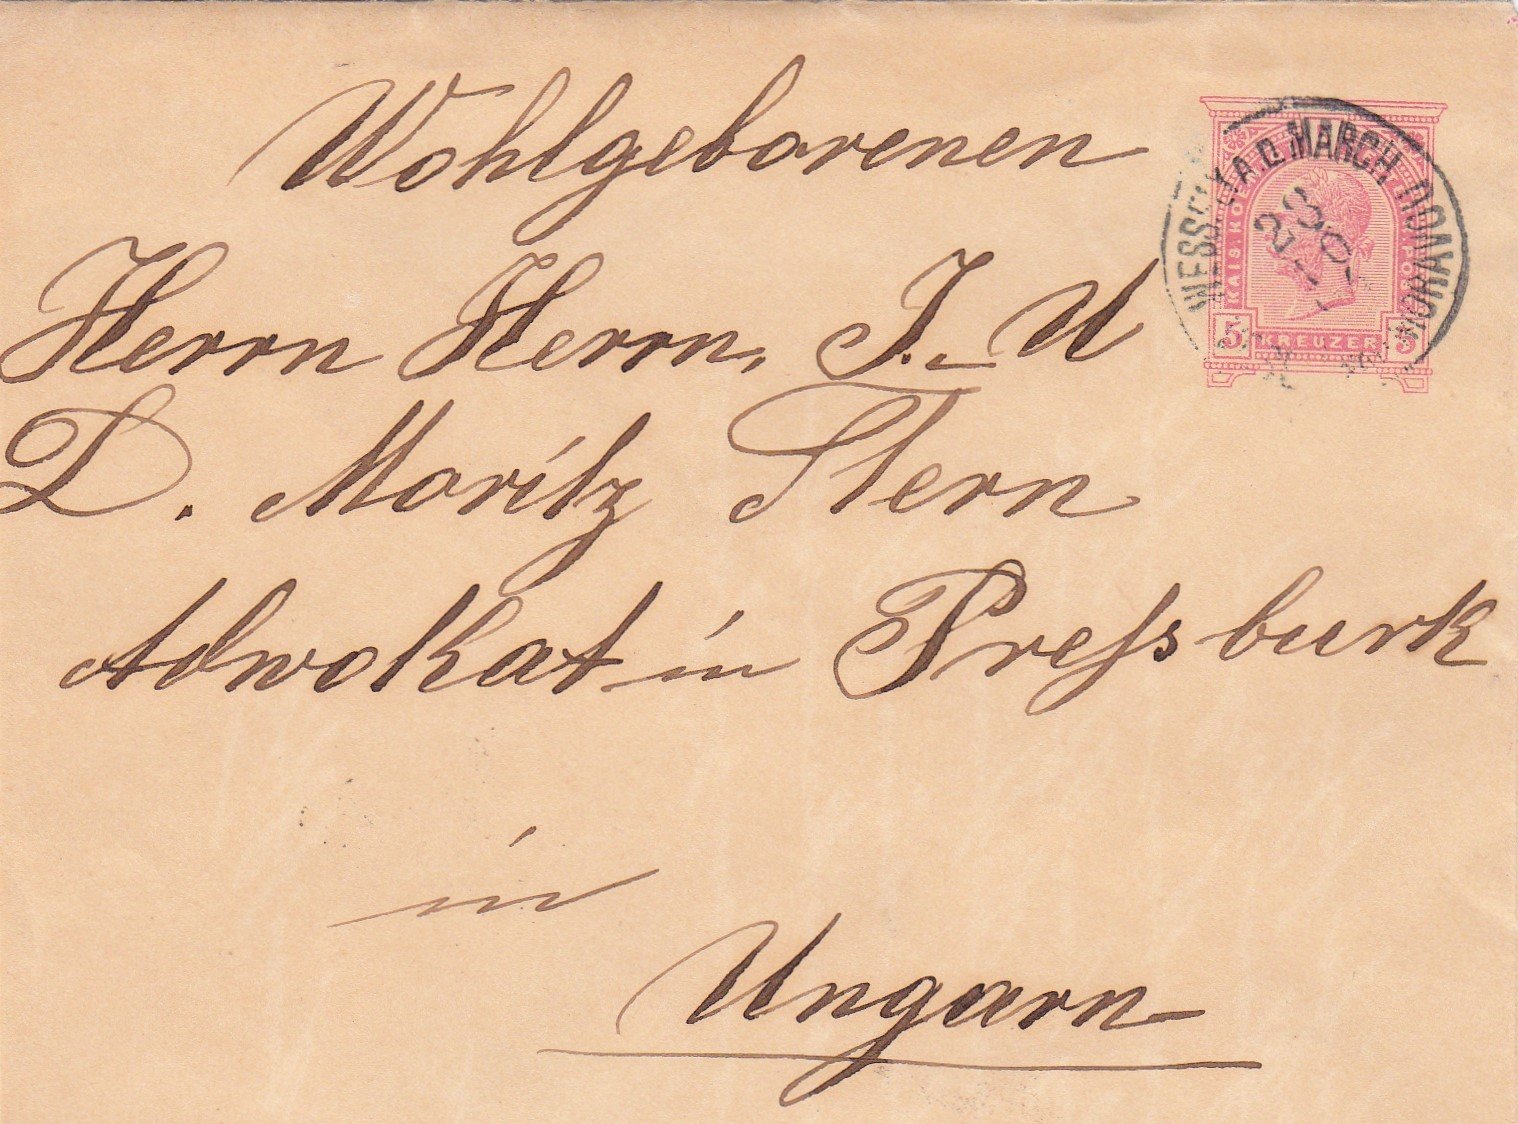 Wohlgeborenen
Herrn Herrn, J. U
D. Moritz Stern
Advokat in Pressburk
in
Ungarn
WESSELY A.D. MARCH
MORAVOU
23
10
KAIS. KÖ
5 KREUZER 5